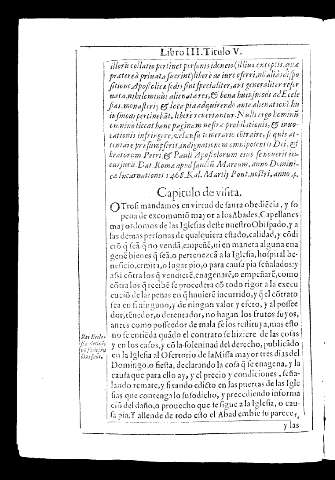 Libro III. Titulo V.
illorū collatio pertinet personis idoneis (illius exceptis, quæ
præterea privata fuerint) libere ac iure conferri,
sitione Apostolica sedis sint specialiter, aut generaliter reser
vata, nihilominus alienatores, & bona huiusmodi ad Ecle
sias, monasteria, & loca pia ad quæ ante alienationē hu
iusmodi pertinebāt, libere revertantur. Nulli ergo hominū
omnino liceat hanc paginam nostræ prohibitionis, & inno
vationis infringere, vel ei ausu temerario cōtraire, si quis at-
tentare præsumpserit, indignationem omnipotentis Dei, &
beatorum Petri, & Pauli Apostolorum eius se noverit in-
cursurū. Dat. Romæ apud sanctū Marcum, anno Domini-
cæ Incarnationis 1468. Kal. Martij Pont. nostri, anno 4.
Capitulo de visita.
OTrosi mandamos en virtud de santa obediēcia, y so
pena de excomunió mayor a los Abades, Capellanes
mayordomos de las Iglesias deste nuestro Obispado, y a
las demas personas de qualquiera estado, calidad, y cōdi
ciō q̄ seā q̄ no vendā, empeñē, ni en manera alguna ena
genē bienes q̄ seā, o pertenezcā a la Iglesia, hospital be-
neficio, ermita, o lugar pio, o para causa pia señalados, y
assi cōtra los q̄ vendierē, enagenarē, o empeñarē, como
cōtra los q̄ recibē se procedera cō todo rigor a la execu
ciō de las penas en q̄ huvierē incurrido, y q̄ el cōtrato
sea en si ninguno, y de ningun valor y efecto, y al posses
dor, tenedor, o detenedor, no hagan los frutos suyos,
antes como posseedor de mala fe los restituya, mas esto
no se entiēda quādo el contrato se hiziere de las cosas
y en los casos, y cō la solenidad del derecho, publicādo
en la Iglesia al Ofertorio de la Missa mayor tres dias del
Domingo, o fiesta, declarando la cosa q̄ se enagena, y la
causa que para ello ay, y el precio y condiciones, seña-
lando remate, y fixando edicto en las puertas de las Igle
sias que contenga lo susodicho, y precediendo informa
ciō del daño, o provecho que se sigue a la Iglesia, o cau-
sa pia. Y allende de todo esto el Abad embie su parecer,
y las